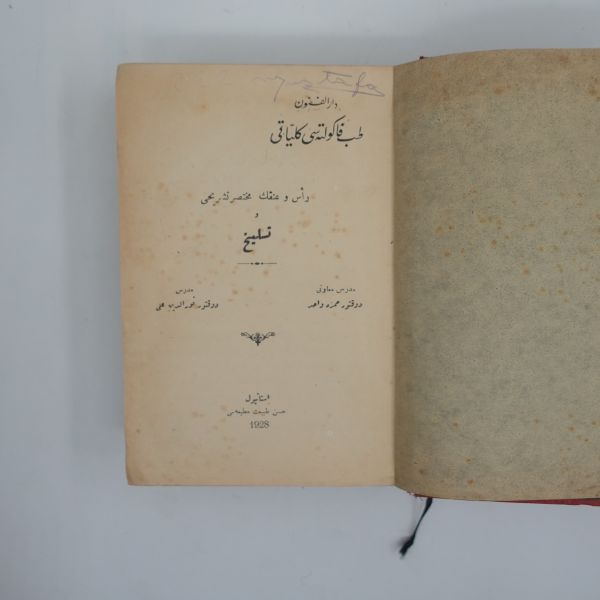 mustafa
دارالفنون
طب فاكولته‌سی كلیاتی
رأس و عنقك مختصر تشریحی
و
تسلیخ
مدرس معاونی
دوقتور حمزه واحد
مدرس
دوقتور نورالدین علی
استانبول
حسن طبیعت مطبعه‌سی
1928